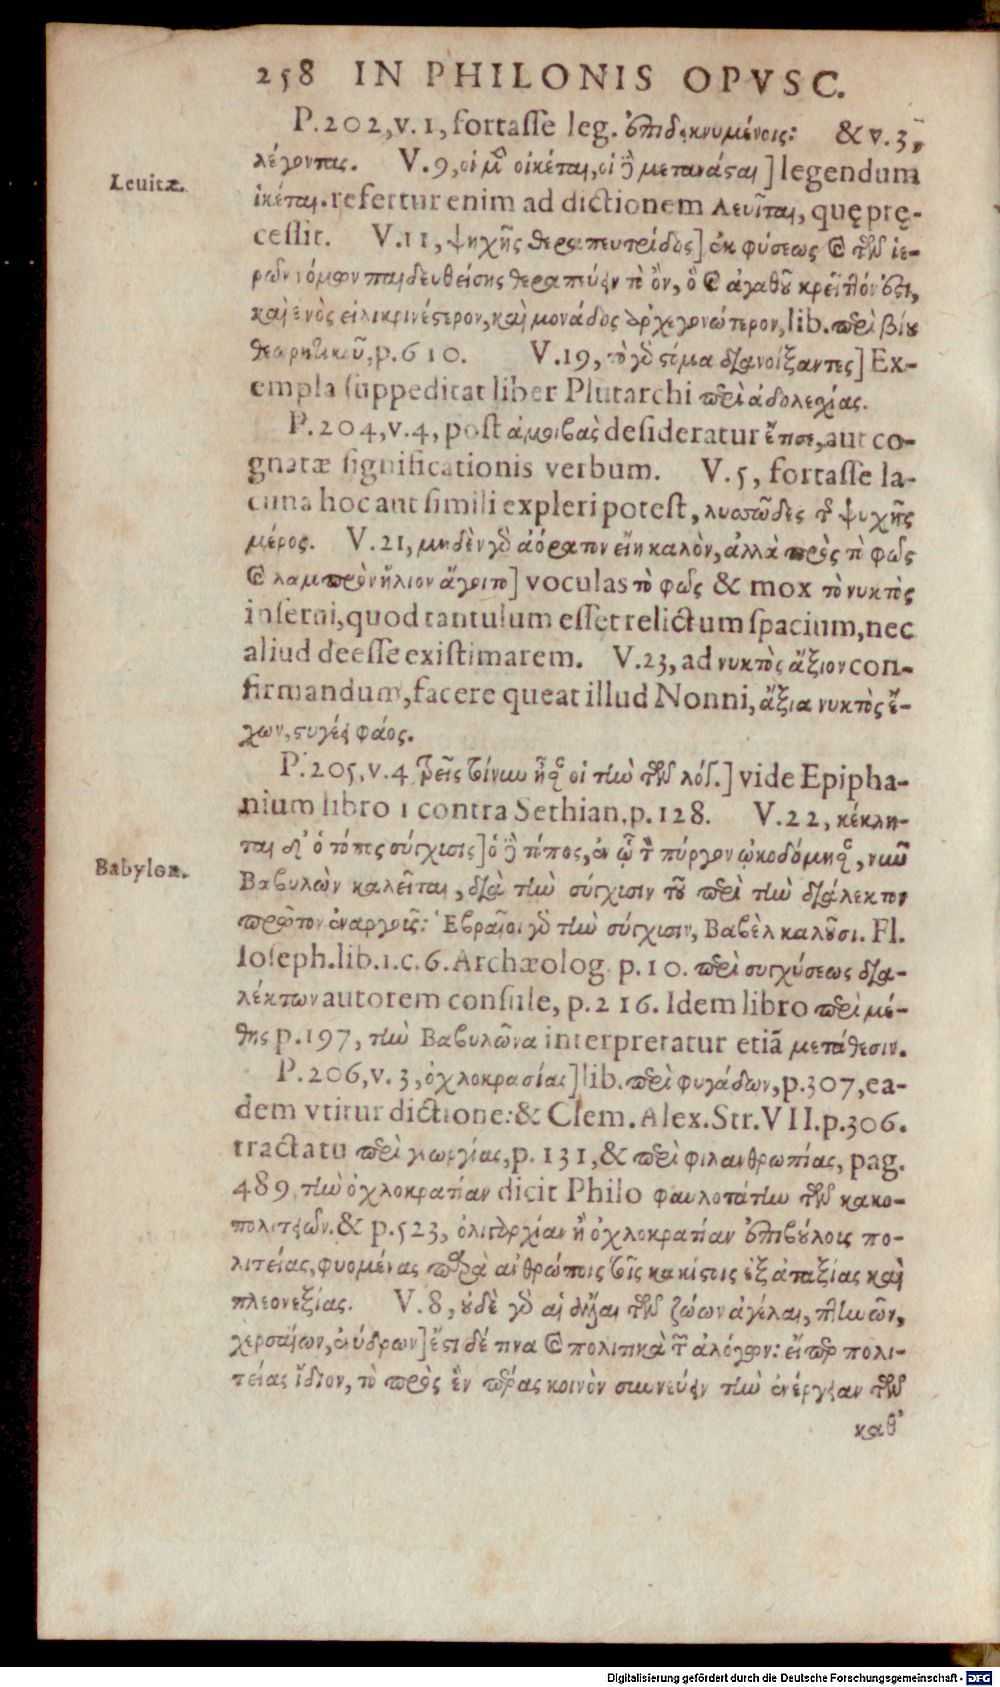 258 IN PHILONIS OPVSC.
P. 202, v. 1, fortasse leg. ἐπιδεικνυμένοις: & v. 3,
λέγοντας. V. 9, οἱ μὲν οἰκέται, οἱ δὲ μετανάσται] legendum
Leuitæ.
ἱκέται. refertur enim ad dictionem Λευῖται, quę prę-
cessit. V. 11, ψυχῆς θεραπευτρίδος] ἐκ φύσεως καὶ τῶν ἱε-
ρῶν νόμων παιδευθείσης θεραπεύειν τὸ ὂν, ὃ καὶ ἀγαθοῦ κρεῖττόν ἐστι,
καὶ ἑνὸς εἰλικρινέστερον, καὶ μονάδος ἀρχεγονώτερον, lib. περὶ βίου
θεωρητικοῦ, p. 610. V. 19, τὸ γὰρ στόμα διανοίξαντες] Ex-
empla suppeditat liber Plutarchi περὶ ἀδολεσχίας.
P. 204, v. 4, post ἀμοιβὰς desideratur ἔπεισι, aut co-
gnatæ significationis verbum. V. 5, fortasse la-
cuna hoc aut simili expleri potest, λυσσῶδες τῆς ψυχῆς
μέρος. V. 21, μηδὲν γὰρ ἀόρατον εἴη καλὸν, ἀλλὰ πρὸς τὸ φῶς
καὶ λαμπρὸν ἥλιον ἄγοιτο] voculas τὸ φῶς & mox τὸ νυκτὸς
inserui, quod tantulum esset relictum spacium, nec
aliud deesse existimarem. V. 23, ad νυκτὸς ἄξιον con-
firmandum, facere queat illud Nonni, ἄξια νυκτὸς ἔ-
χων, στυγέει φάος.
P. 205, v. 4 τρεῖς τοίνυν οἱ τὴν τῶν] vide Epipha-
nium libro 1 contra Sethian. p. 128. V. 22, κέκλη-
ται δ' ὁ τόπος σύγχυσις] ὁ δὲ τόπος, ἐν ᾧ τὸν πύργον ᾠκοδόμησαν, νῦν
Babylon.
Βαβυλὼν καλεῖται, διὰ τὴν σύγχισιν τοῦ περὶ τὴν διάλεκτον
πρῶτον ἐναργοῦς: Ἑβραῖοι γὰρ τὴν σύγχισιν, Βαβὲλ καλοῦσι. Fl.
Ioseph. lib. 1. c. 6. Archæolog. p. 10. περὶ συγχύσεως δια-
λέκτων autorem consule, p. 216. Idem libro περὶ μέ-
θης p. 197, τὴν Βαβυλῶνα interpretatur etiã μετάθεσιν.
P. 206, v. 3, ὀχλοκρασίαι] lib. περὶ φυγάδων, p. 307, ea-
dem vtitur dictione: & Clem. Alex. Str. VII. p. 306.
tractatu περὶ γεωργίας, p. 131, & περὶ φιλανθρωπίας, pag.
489, τὴν ὀχλοκρατίαν dicit Philo φαυλοτάτην τῶν κακο-
πολιτειῶν. & p. 523, ὀλιγαρχίαν ἢ ὀχλοκρατίαν ἐπιβούλοις πο-
λιτείας, φυομένας παρὰ ἀνθρώποις τοῖς κακίστοις ἐξ ἀταξίας καὶ
πλεονεξίας. V. 8, οὐδὲ γὰρ αἱ τῶν ζώων ἀγέλαι, πτηνῶν,
χερσαίων, ἐνύδρων] ἔστι δέ τινα καὶ πολιτικὰ τῶν ἀλόγων: εἴπερ πολι-
τείας ἴδιον, τὸ πρὸς ἓν πέρας κοινὸν συννεύειν τὴν ἐνέργειαν τῶν
καθ'
Digitalisierung gefördert durch die Deutsche Forschungsgemeinschaft - DFG